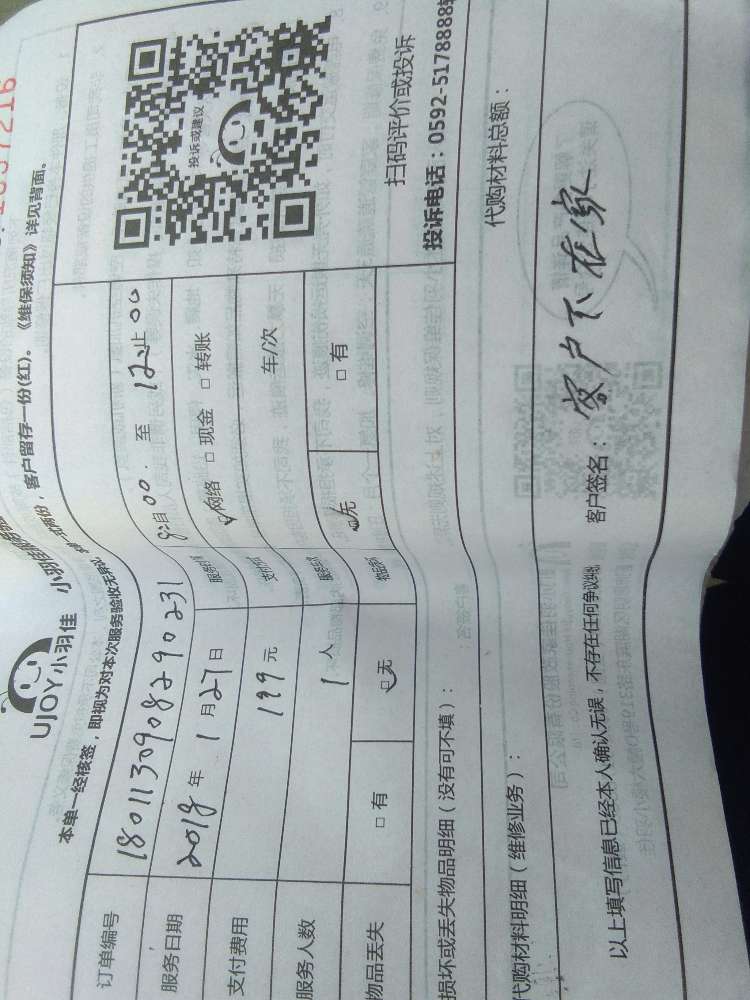 1657216
UJOY小羽佳
本单一经核签，即视为对本次服务验收无异议。
客户留存一份(红)。《维保须知》详见背面。
订单编号 1801130908290231
服务日期 2018 年 1 月 27 日
8:自00. 至 12止00
支付费用 199 元
网络 □ 现金 □ 转账
服务人数 1 人
车/次
物品丢失 □ 有 □ 无
无 □ 有
投诉或建议
扫码评价或投诉
投诉电话：0592-5178888转
损坏或丢失物品明细（没有可不填）：
代购材料明细（维修业务）：
代购材料总额：
以上填写信息已经本人确认无误，不存在任何争议纠纷
客户签名：客户不在家